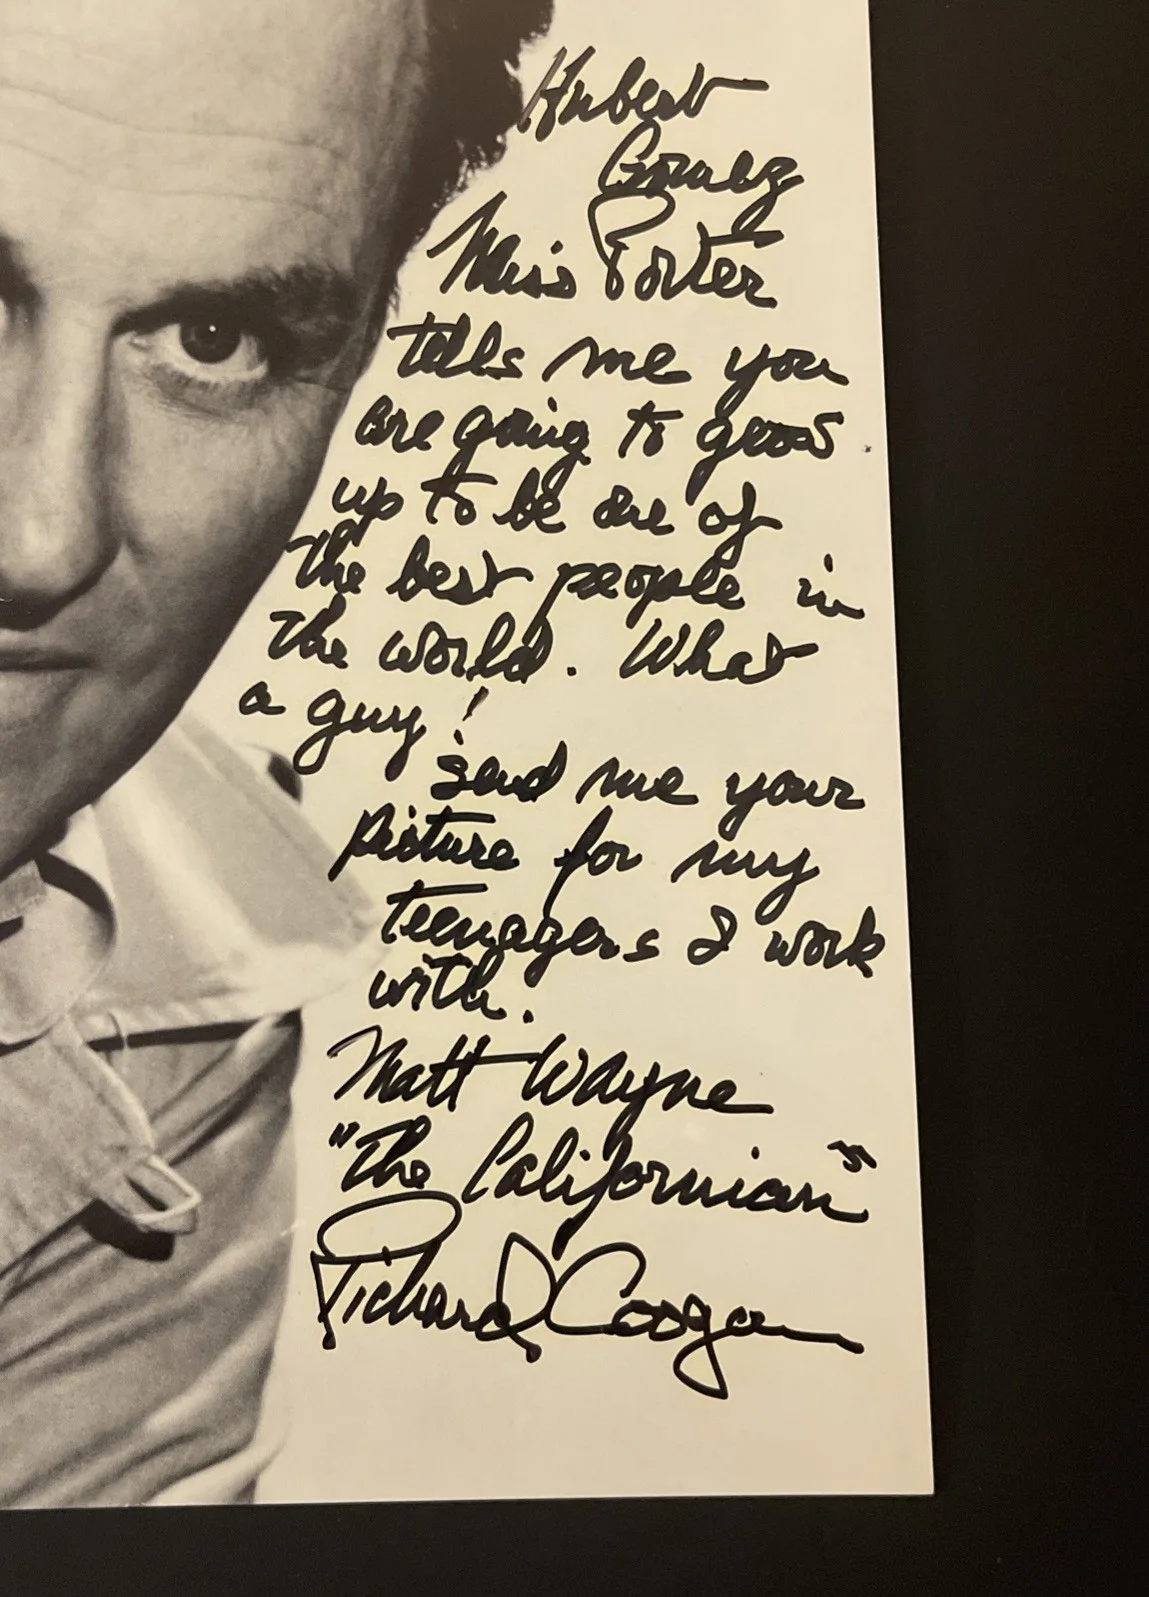 Hubert
Gomez
Miss Porter
tells me you
are going to grow
up to be one of
the best people in
the world. What
a guy!
Send me your
picture for my
teenagers I work
with.
Matt Wayne
"The Californian"
Richard Coogan